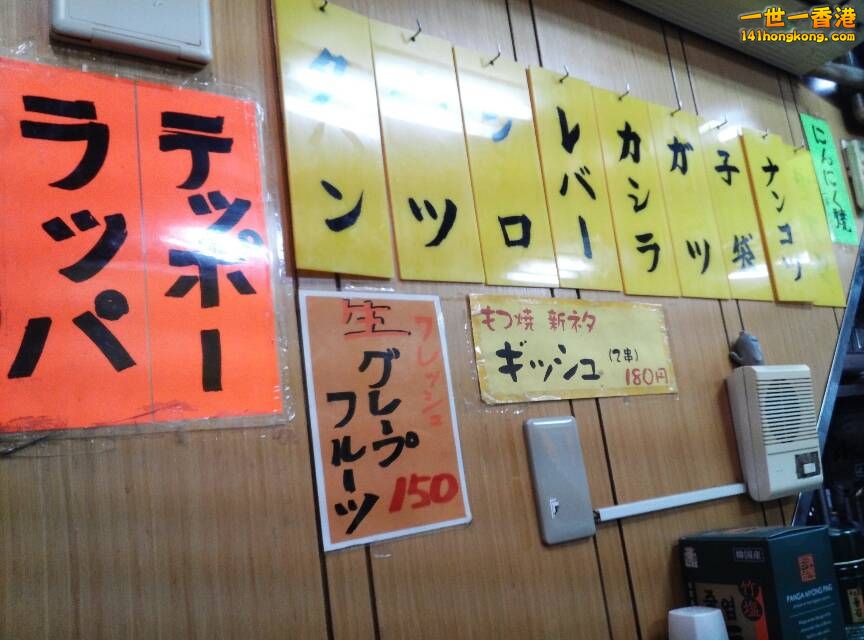 テッポー
ラッパ
タン
ツ
シロ
レバー
カシラ
ガツ
子袋
ナンコツ
にんにく焼
生
フレッシュ
グレープ
フルーツ
150
もつ焼 新ネタ
ギッシュ (2串) 180円
韓国産
竹塩
PANGA MYONG PUG
一世一香港
141hongkong.com